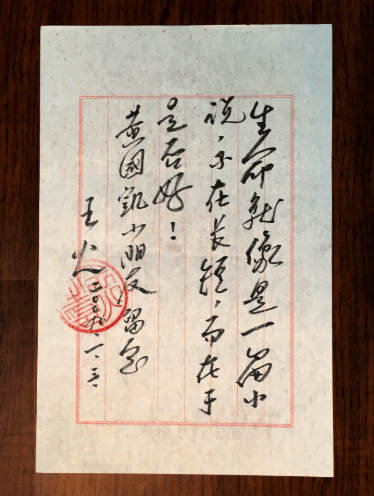 生命就像是一篇小
说，不在长短，而在于
是否好！
黄國凯小朋友留念
王火